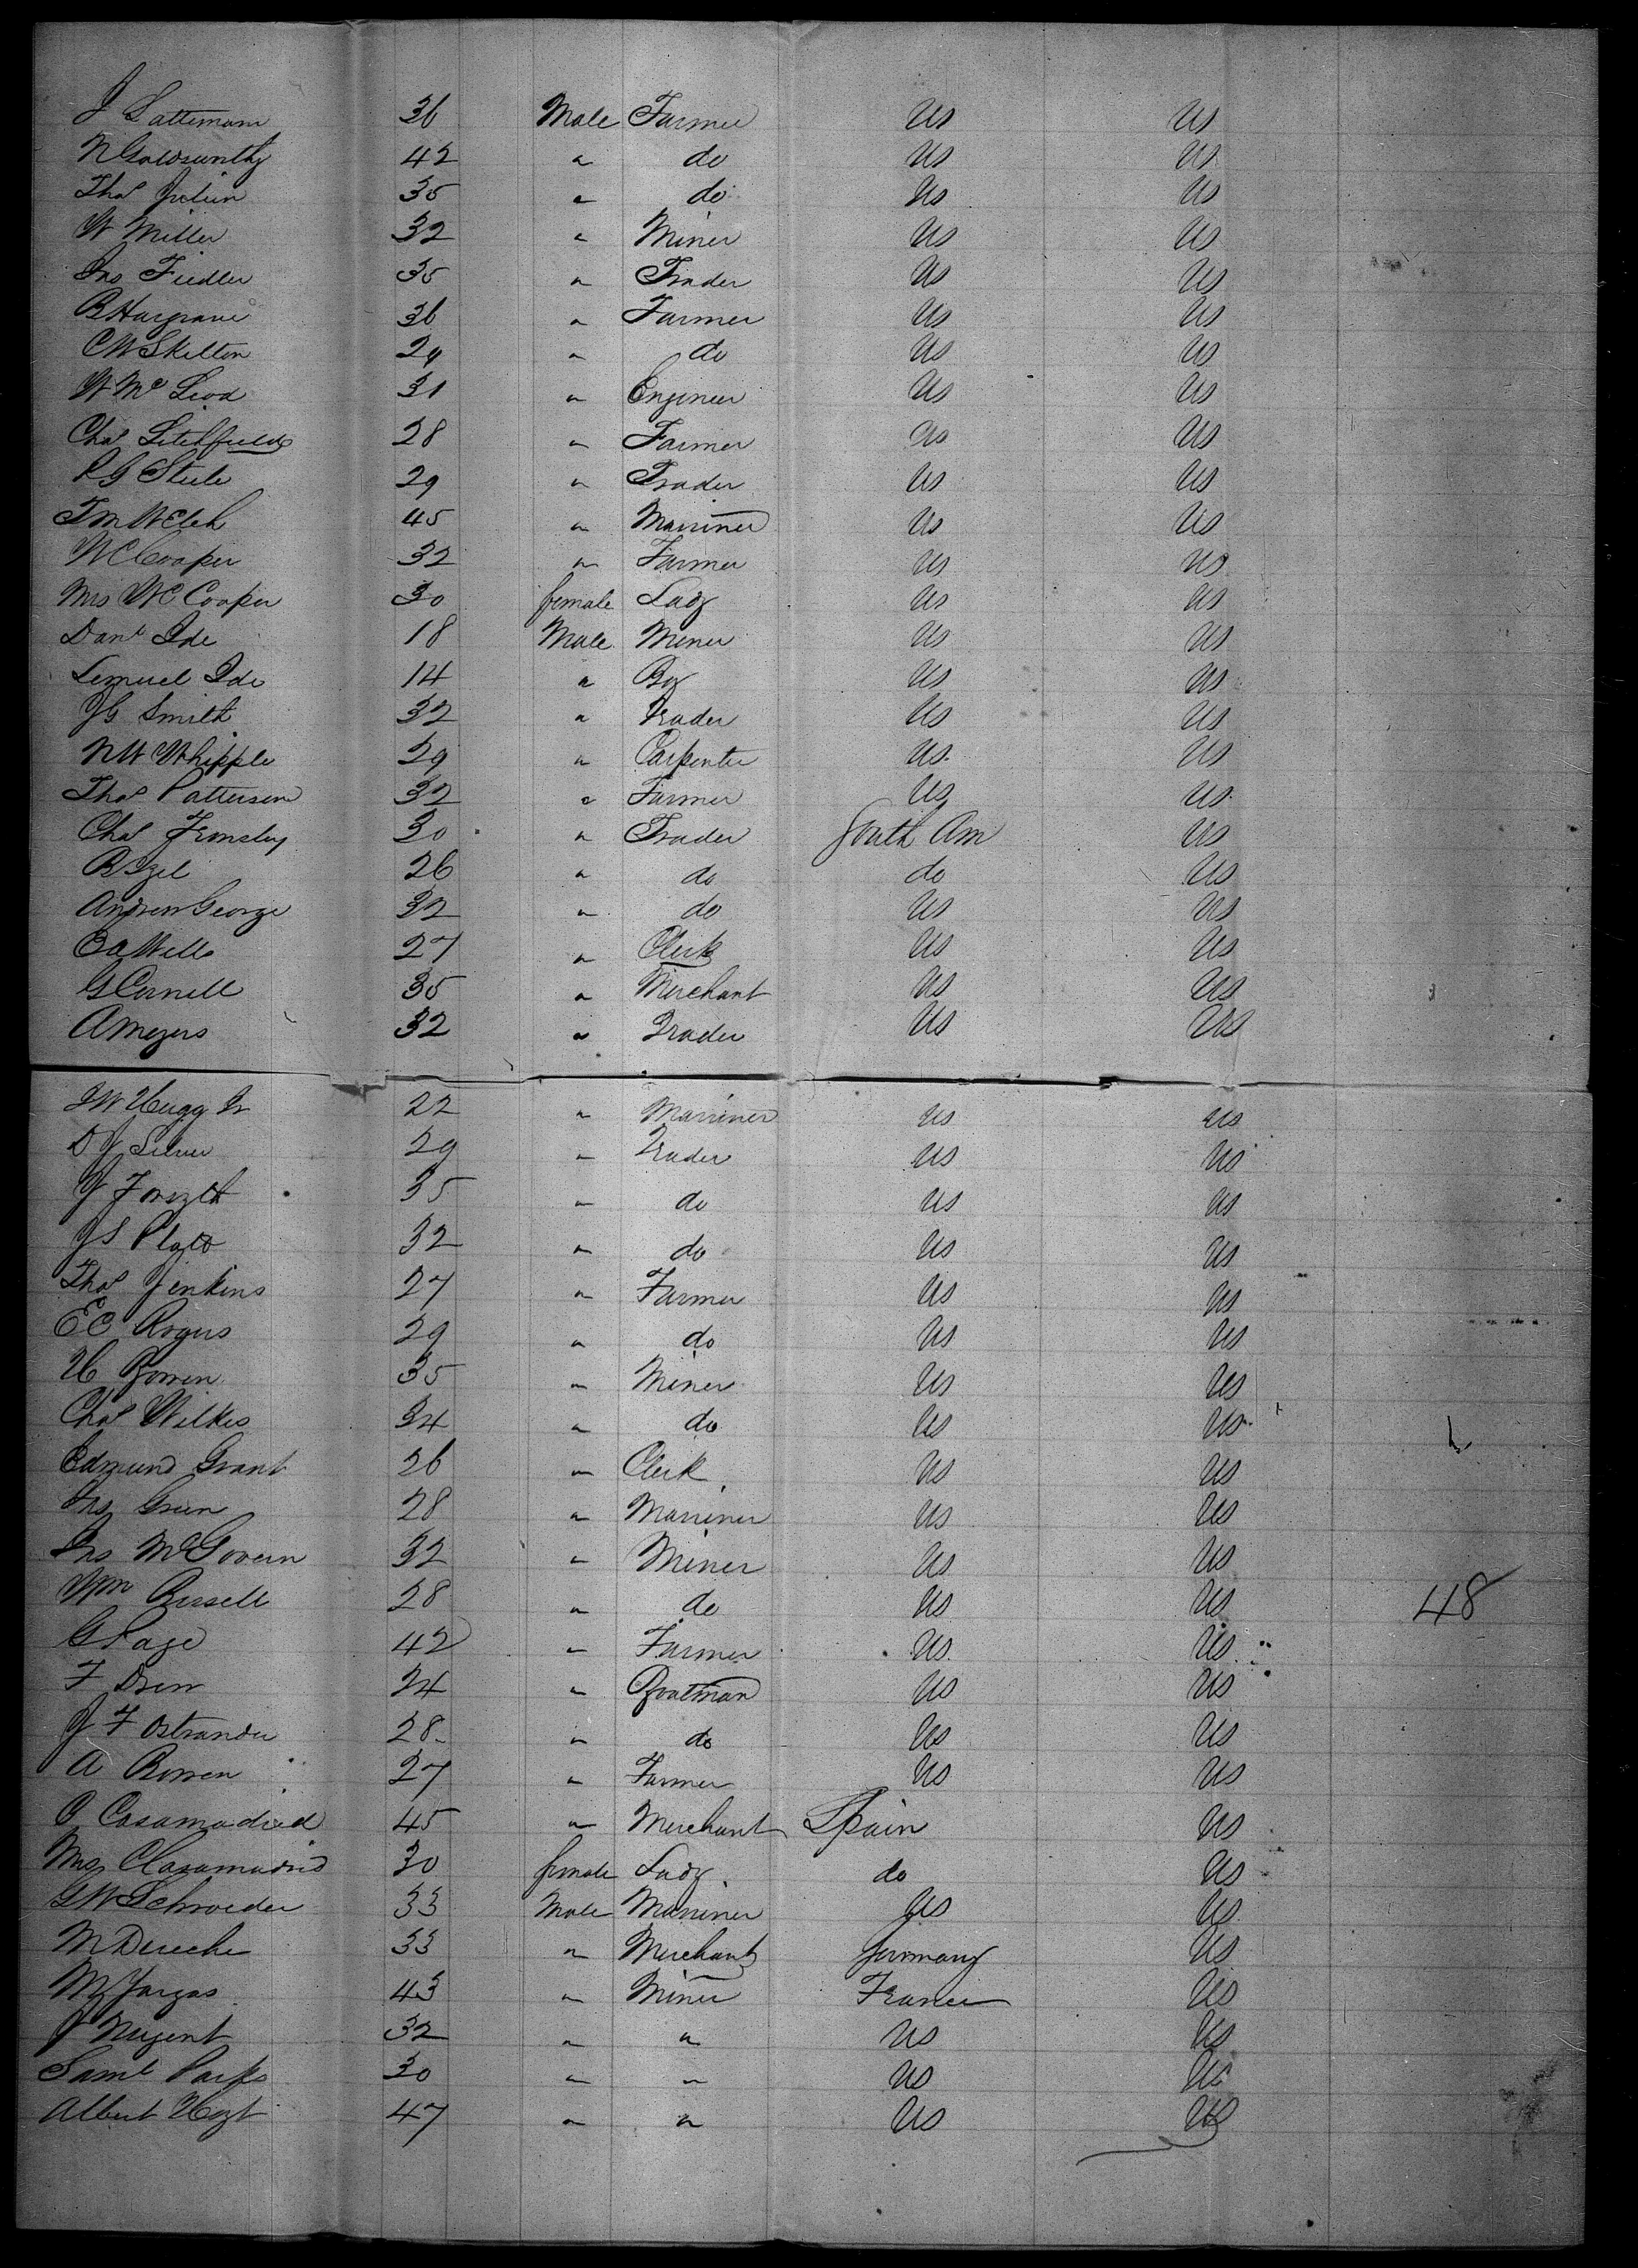 J Lattemann 36 Male Farmer US US
N Goldsunthy 42 " do US US
Thos Julien 35 " do US US
W Miller 32 " Miner US US
Jno Fiedler 35 " Trader US US
B Hargrave 36 " Farmer US US
C W Skelton 29 " do US US
W Mc Leod 31 " Engineer US US
Chas Litchfield 28 " Farmer US US
R G Steele 29 " Trader US US
J M Welch 45 " Marriner US US
W C Cooper 32 " Farmer US US
Mrs W C Cooper 30 female Lady US US
Danl Ide 18 Male Miner US US
Lemuel Ide 14 " Boy US US
J G Smith 32 " Trader US US
N W Whipple 29 " Carpenter US US
Thos Patterson 32 " Farmer US US
Chas 30 " Trader South Am US
B 26 " do do US
Andrew George 32 " do US US
Wells 27 " Clerk US US
G Cornell 35 " Merchant US US
A Meyers 32 " Trader US US
J W Hugg Jr 22 " Marriner US US
D J Silver 29 " Trader US US
J Forsyth 35 " do US US
J S Plato 32 " do US US
Thos Jenkins 27 " Farmer US US
E C Rogers 29 " do US US
H Bowen 35 " Miner US US
Chas Wilkes 34 " do US US
Edmund Grant 26 " Clerk US US
Jno Green 28 " Marriner US US
Jno McGovern 32 " Miner US US
Wm Bissell 28 " do US US 48
G Page 42 " Farmer US US
F Drew 24 " Boatman US US
J F Ostrander 28 " do US US
A Bowen 27 " Farmer US US
C Casamadrid 45 " Merchant Spain US
Mrs Casamadrid 30 female Lady do US
G W Schroeder 33 Male Marriner US US
M 33 " Merchant Germany US
M 43 " Miner France US
J Nugent 32 " " US US
Saml Parks 30 " " US US
Albert Hoyt 47 " " US US